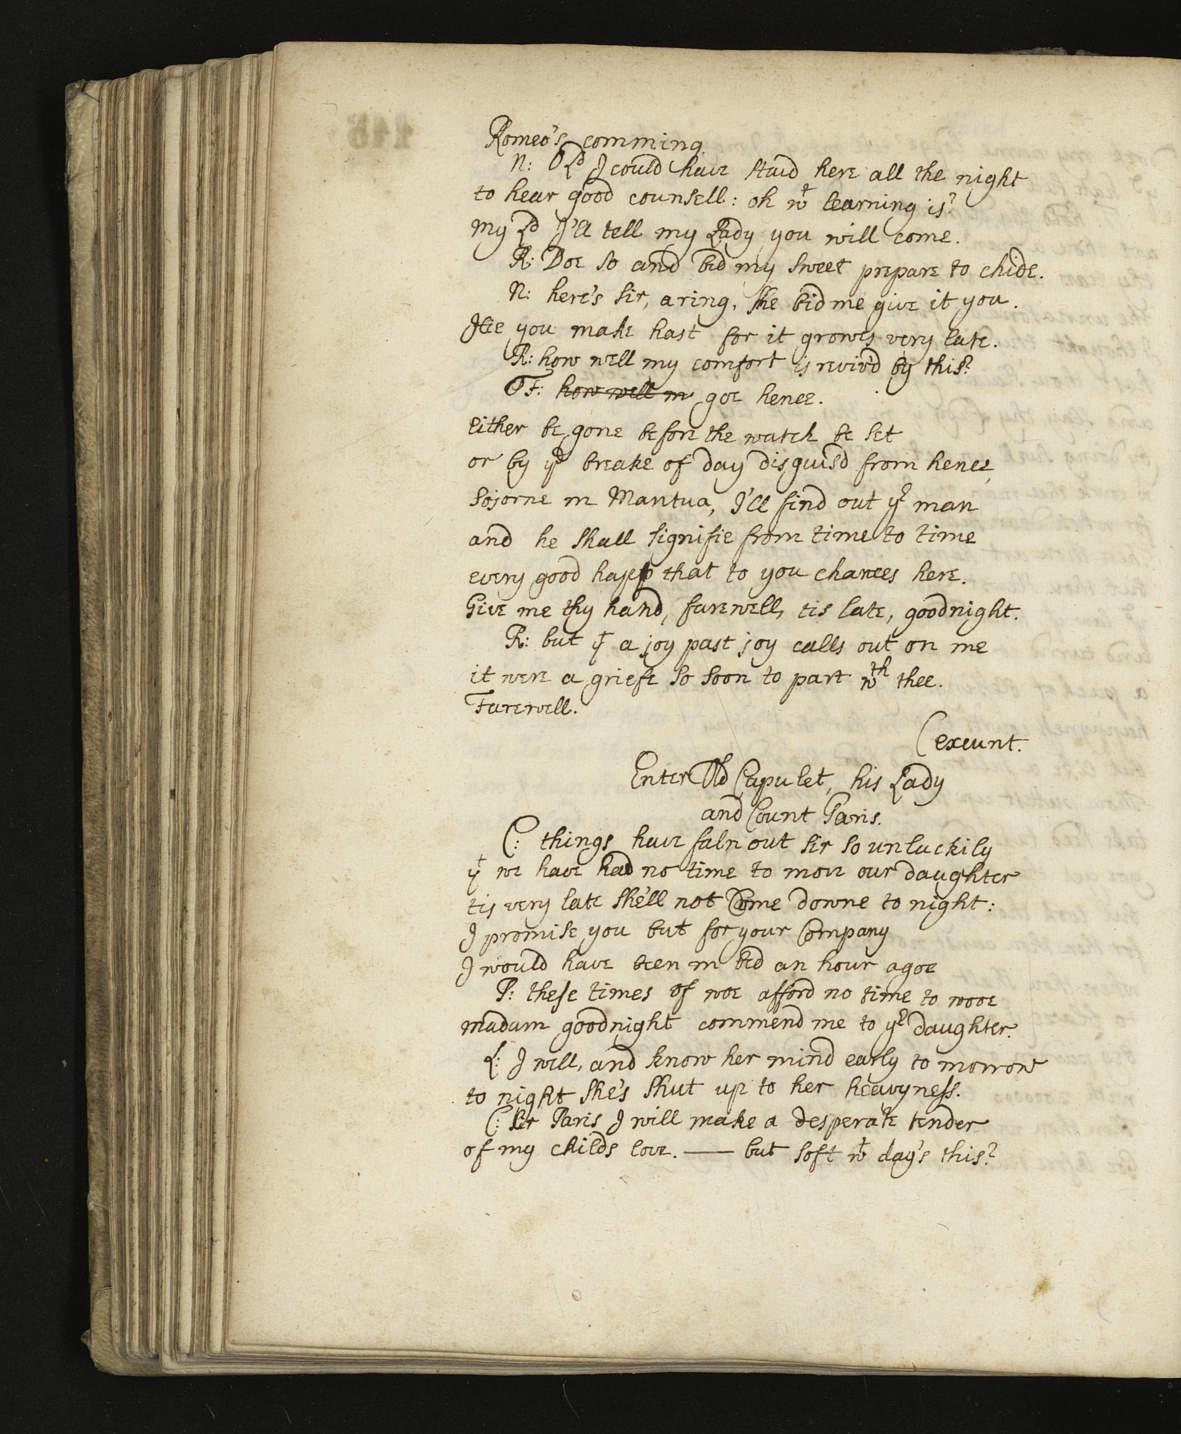 Romeo's comming.
N: O Ld I could have staid here all the night
to hear good counsell: oh wt learning is?
my Ld I'll tell my Lady you will come.
R: Doe so and bid my sweet prepare to chide.
N: here's sir, a ring, she bid me give it you.
Hie you make hast for it growes very late.
R: how well my comfort is reviv'd by this?
F: how well m goe hence.
either be gone before the watch be set
or by ye breake of day disguis'd from hence,
Sojorne in Mantua, I'll find out yr man
and he shall signifie from time to time
every good happ that to you chances here.
Give me thy hand, farewell, tis late, goodnight.
R: but yt a joy past joy calls out on me
it were a griefe so soon to part wth thee.
Farewell.
(exeunt.
Enter Old Capulet, his Lady
and Count Paris.
C: things have faln out sir so unluckily
yt we have had no time to move our daughter
tis very late she'll not Come downe to night:
I promise you but for your Company
I would have been in bed an hour agoe
P: these times of woe afford no time to wooe
madam goodnight commend me to yr daughter.
L: I will, and know her mind early to morrow
to night she's shut up to her heavyness.
C: Sir Paris I will make a desperate tender
of my childs love. —— but soft wt day's this?